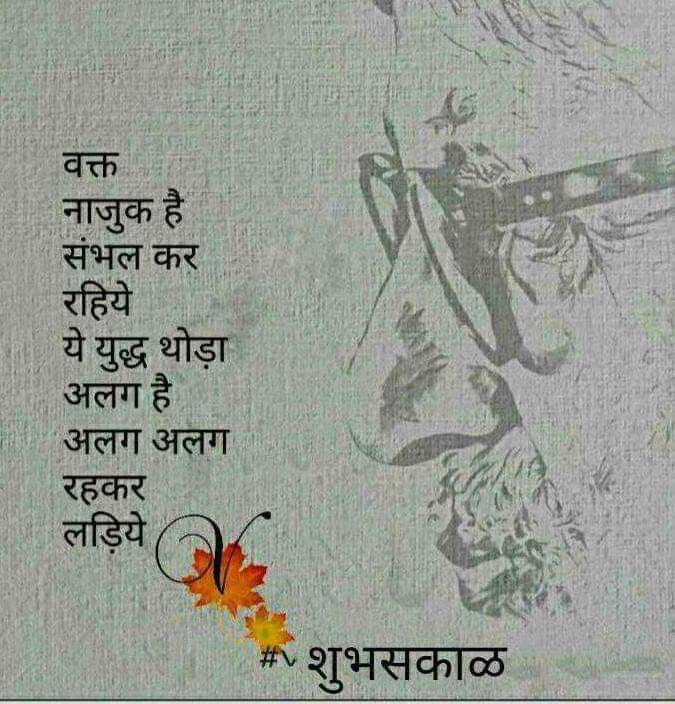 वक्त
नाजुक है
संभल कर
रहिये
ये युद्ध थोड़ा
अलग है
अलग अलग
रहकर
लड़िये
V
# शुभसकाळ